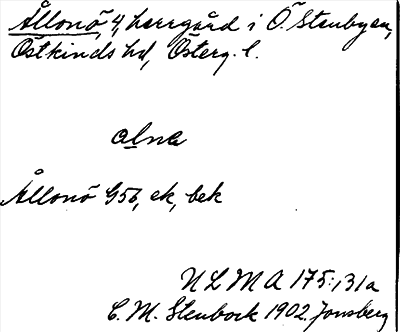 Ållonö, 4, herrgård i Ö. Stenbyen,
Östkinds hd, Österg. l.
alna
Ållonö G56, ek, bek
NLMA 175:131a
C. M. Stenbock 1902 Jonsberg